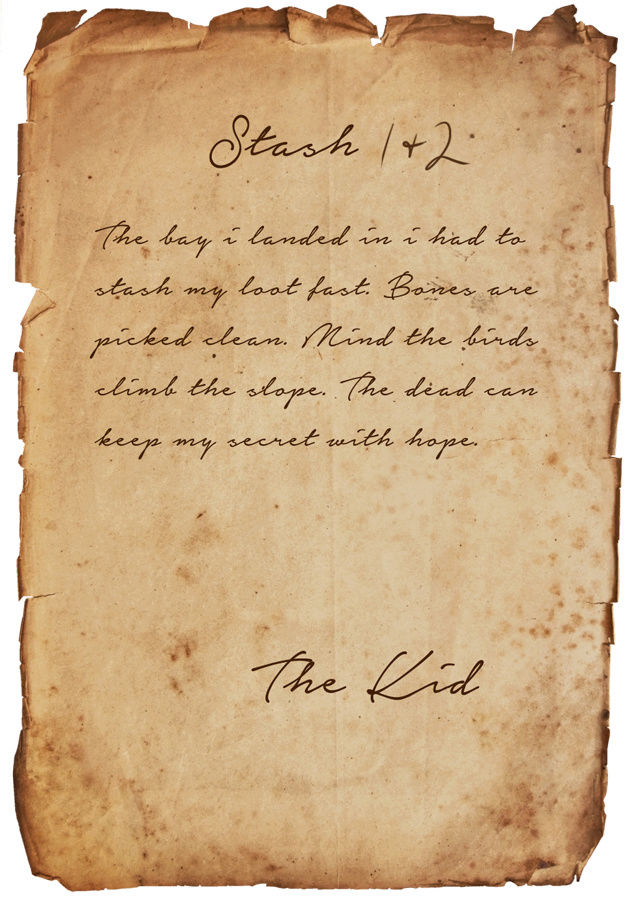 Stash 1+2
The bay i landed in i had to
stash my loot fast. Bones are
picked clean. Mind the birds
climb the slope. The dead can
keep my secret with hope.
The Kid